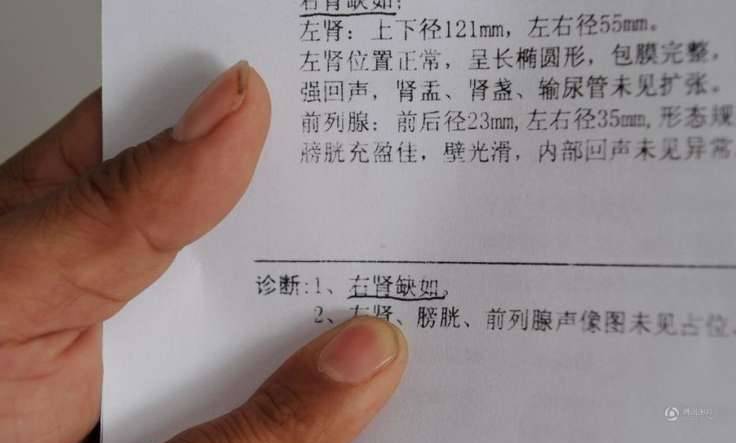 右肾缺如;
左肾: 上下径121mm, 左右径55mm。
左肾位置正常, 呈长椭圆形, 包膜完整,
强回声, 肾盂、肾盏、输尿管未见扩张。
前列腺: 前后径23mm, 左右径35mm, 形态规
膀胱充盈佳, 壁光滑, 内部回声未见异常
诊断:1、右肾缺如。
2、左肾、膀胱、前列腺声像图未见占位